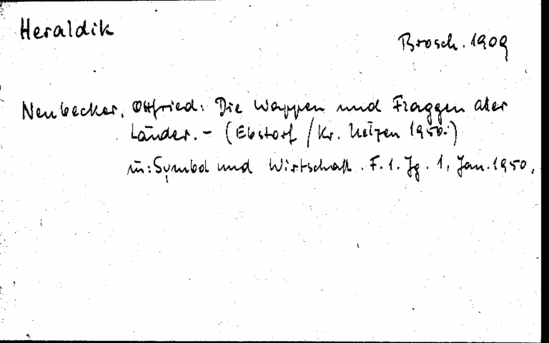 Heraldik
Brosch. 1909
Neubecker, Ottfried: Die Wappen und Flaggen aller
Länder. - (Ebstorf / Kr. Uelzen 1950.)
in: Symbol und Wirtschaft. F. 1. Jg. 1, Jan. 1950,